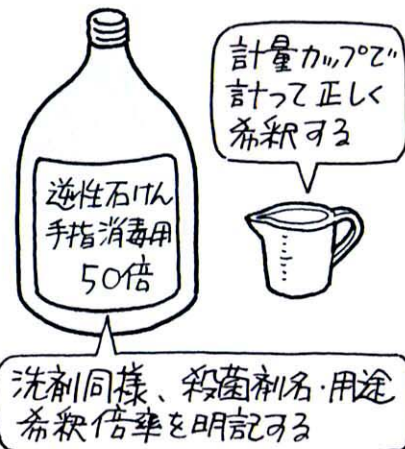 計量カップで
計って正しく
希釈する
逆性石けん
手指消毒用
50倍
洗剤同様、殺菌剤名・用途
希釈倍率を明記する